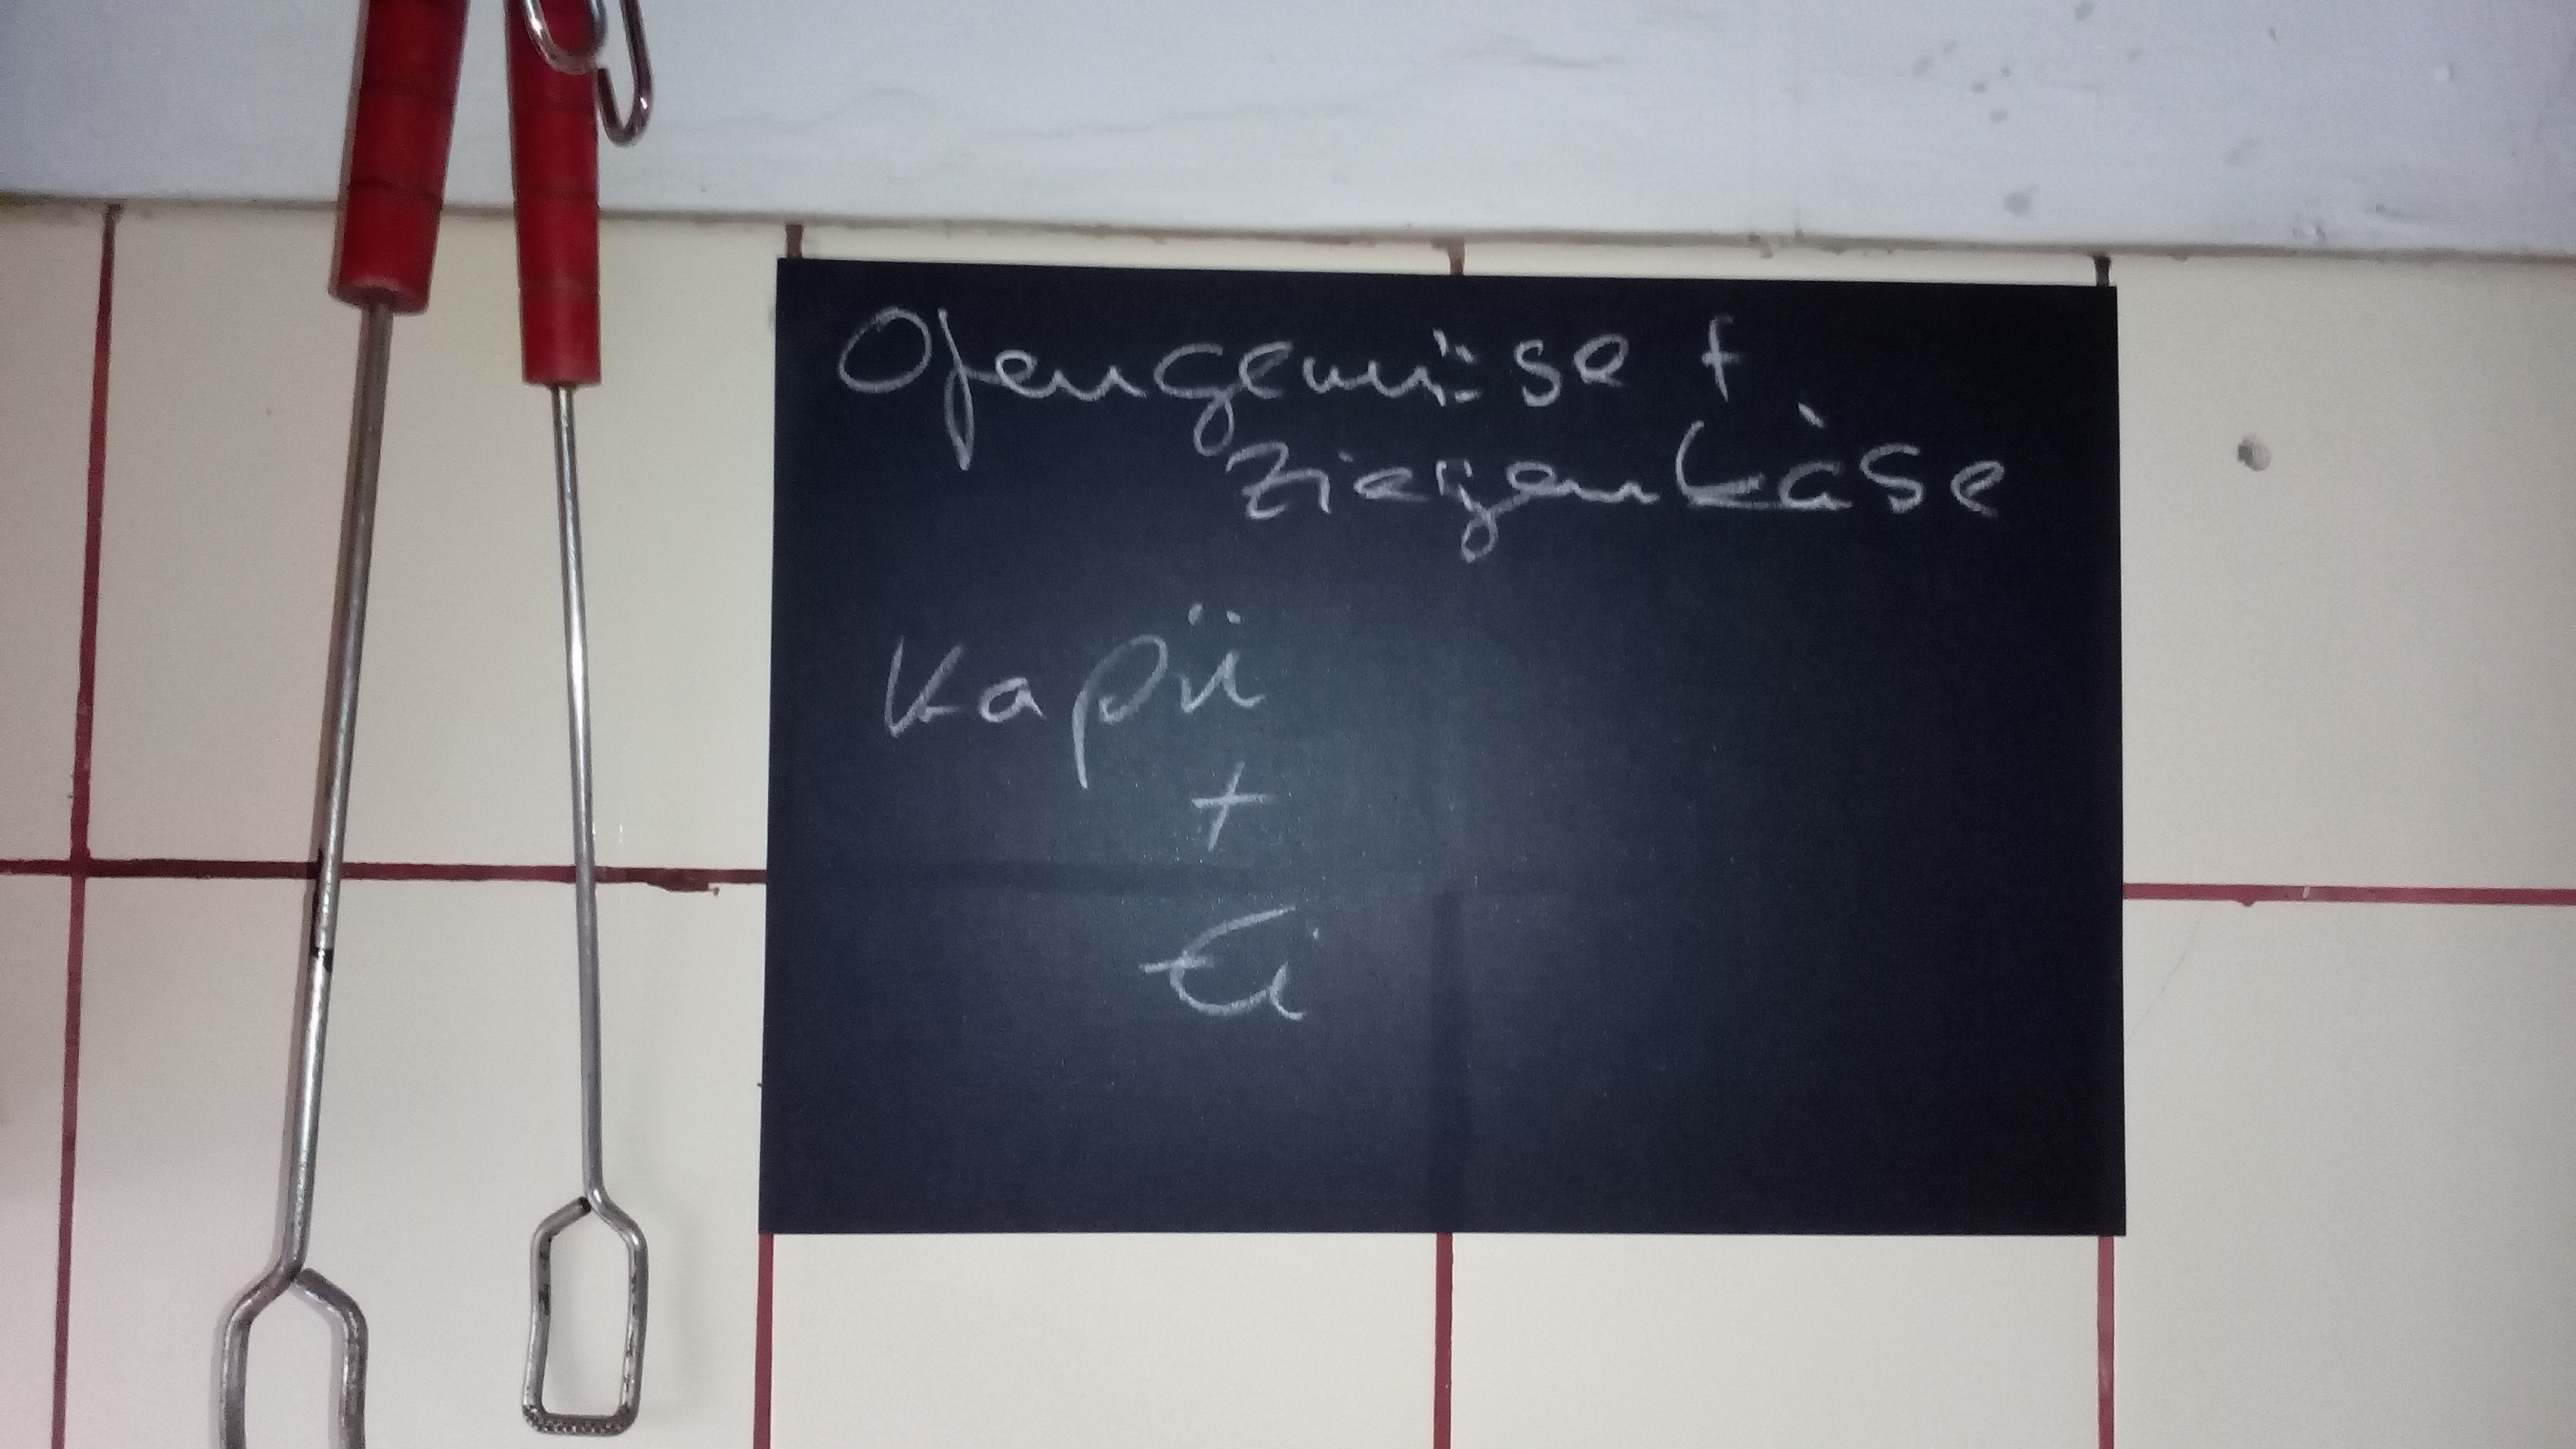 Ofengemüse +
Ziegenkäse
Kapü
+
Ei